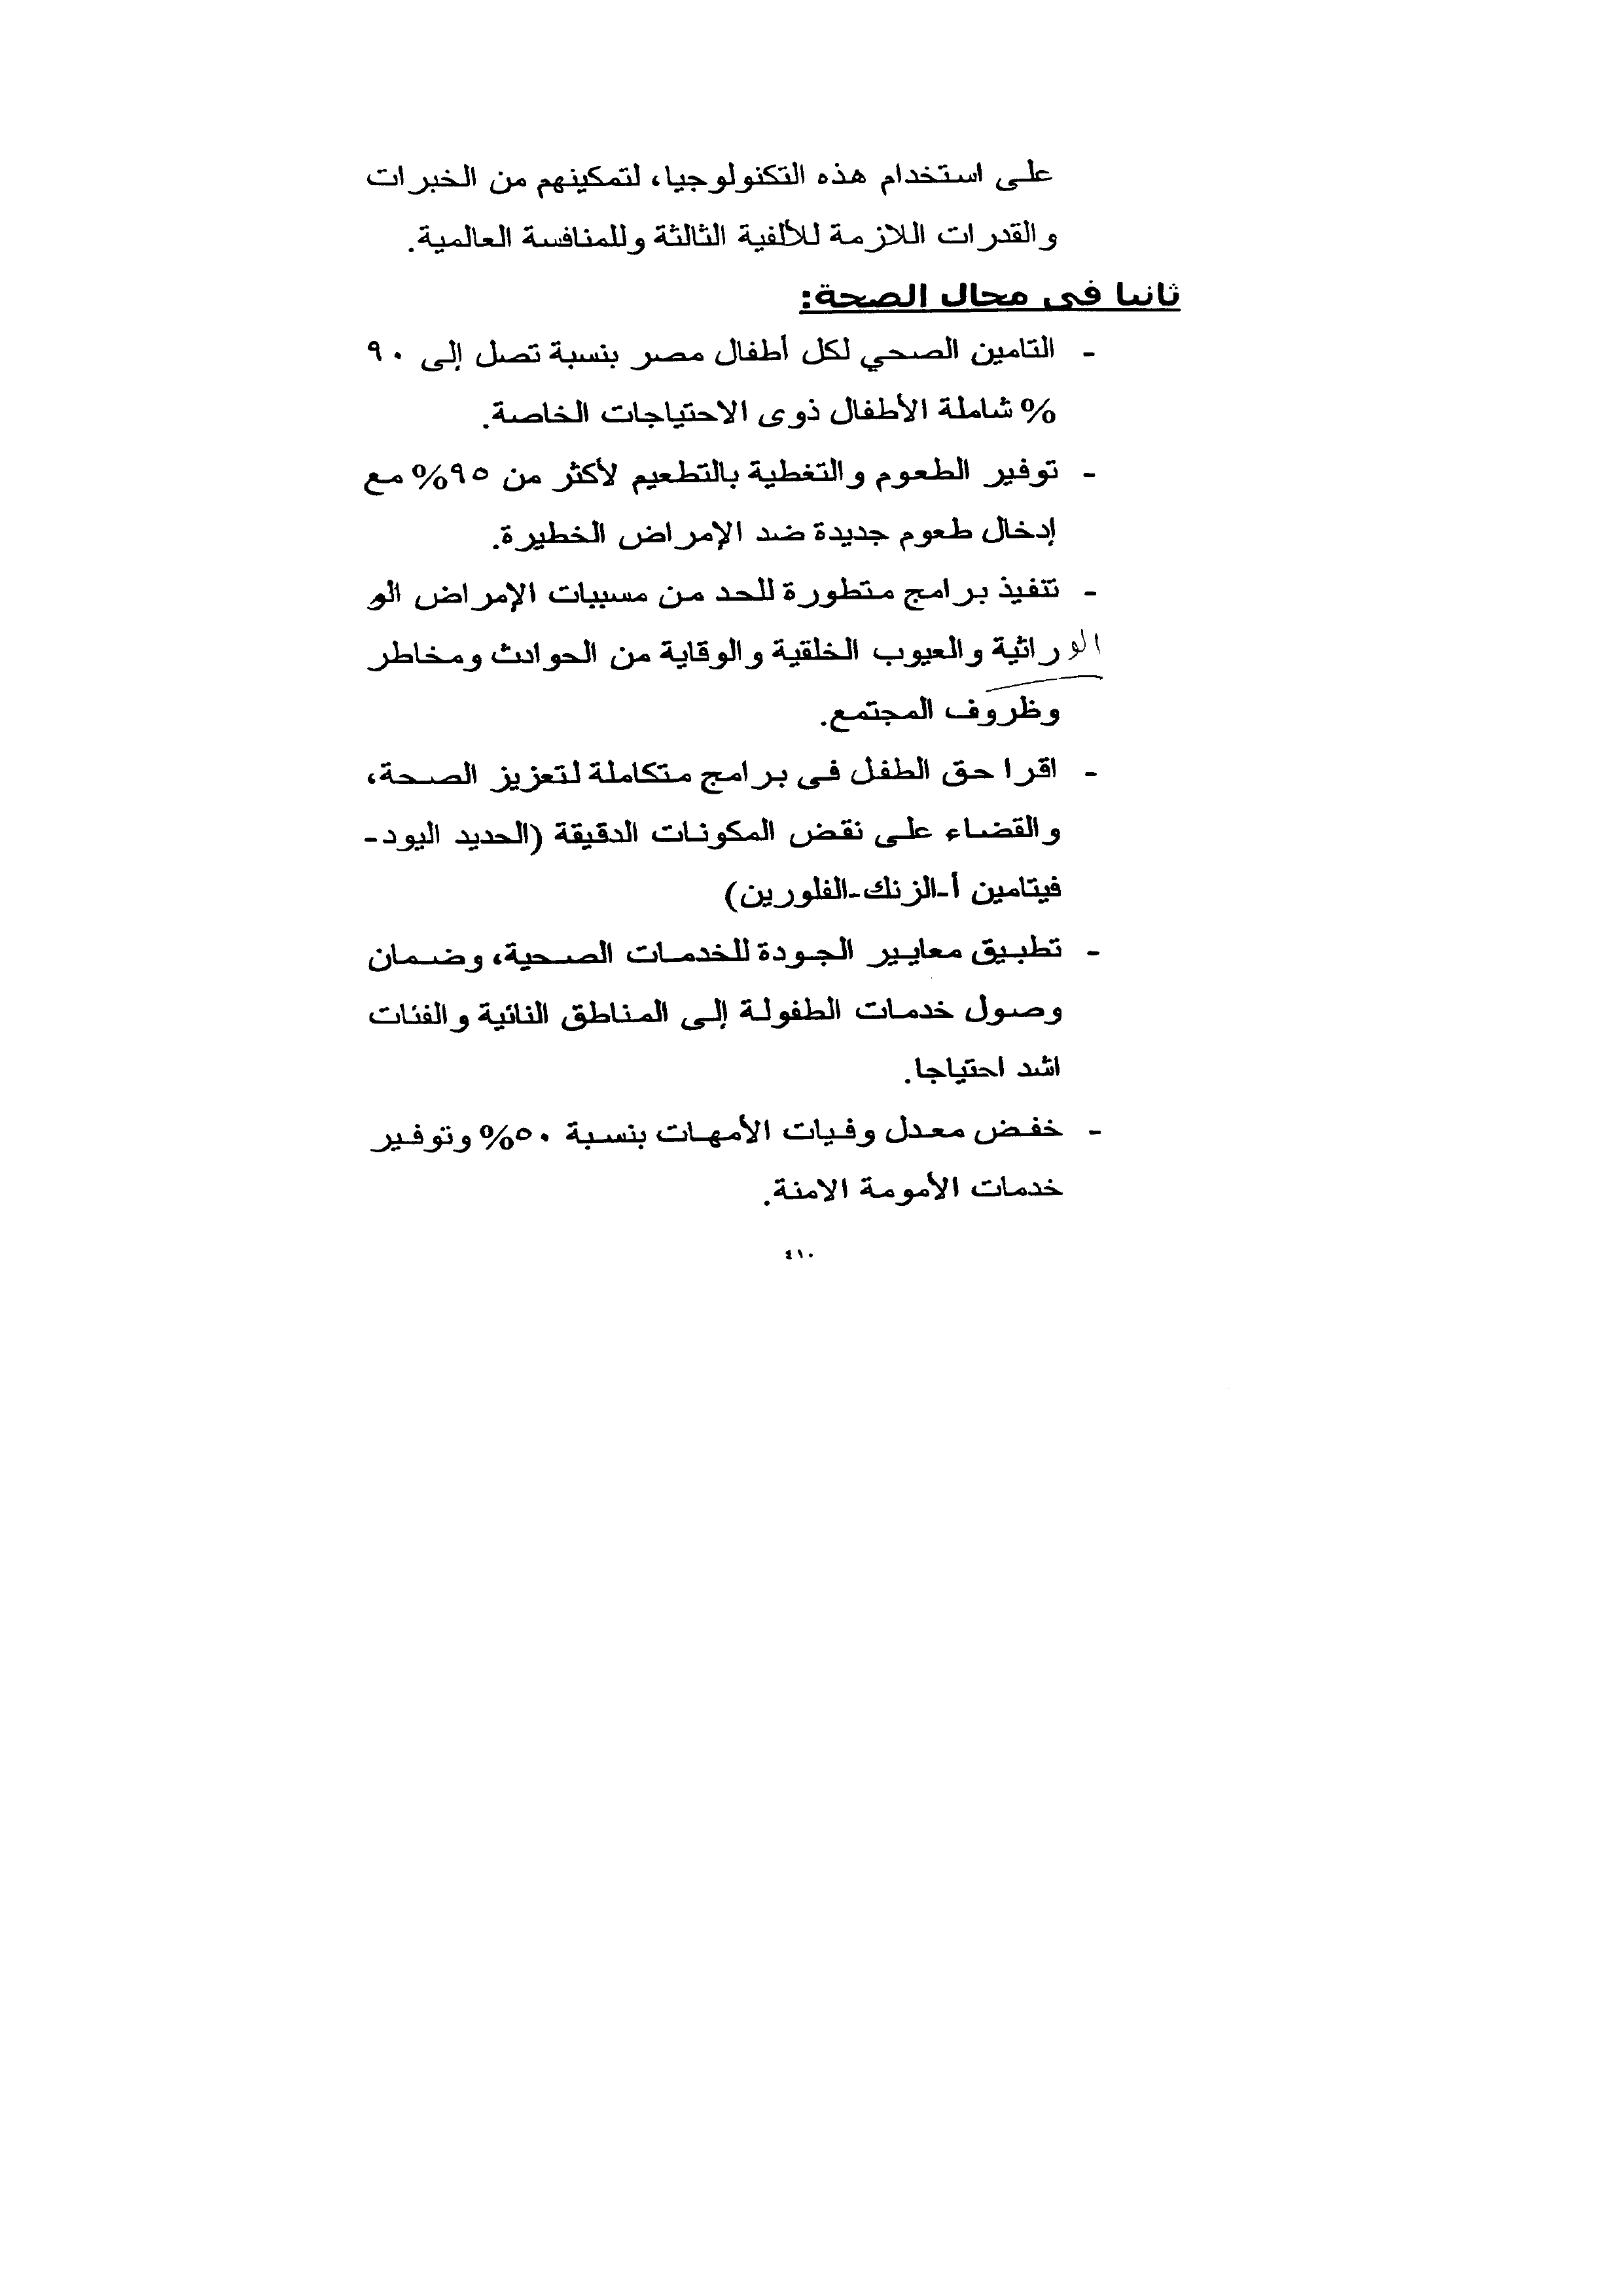 على استخدام هذه التكنولوجيا، لتمكينهم من الخبرات
والقدرات اللازمة للألفية الثالثة وللمنافسة العالمية.
ثانيا في مجال الصحة:
- التامين الصحي لكل أطفال مصر بنسبة تصل إلى ٩٠
% شاملة الأطفال ذوى الاحتياجات الخاصة.
- توفير الطعوم والتغطية بالتطعيم لأكثر من ٩٥% مع
إدخال طعوم جديدة ضد الإمراض الخطيرة.
- تنفيذ برامج متطورة للحد من مسببات الإمراض الو
الوراثية والعيوب الخلقية والوقاية من الحوادث ومخاطر
وظروف المجتمع.
- اقرا حق الطفل فى برامج متكاملة لتعزيز الصحة،
والقضاء على نقض المكونات الدقيقة (الحديد اليود-
فيتامين أ-الزنك-الفلورين)
- تطبيق معايير الجودة للخدمات الصحية، وضمان
وصول خدمات الطفولة إلى المناطق النائية والفئات
اشد احتياجا.
- خفض معدل وفيات الأمهات بنسبة ٥٠% وتوفير
خدمات الأمومة الامنة.
٤١٠